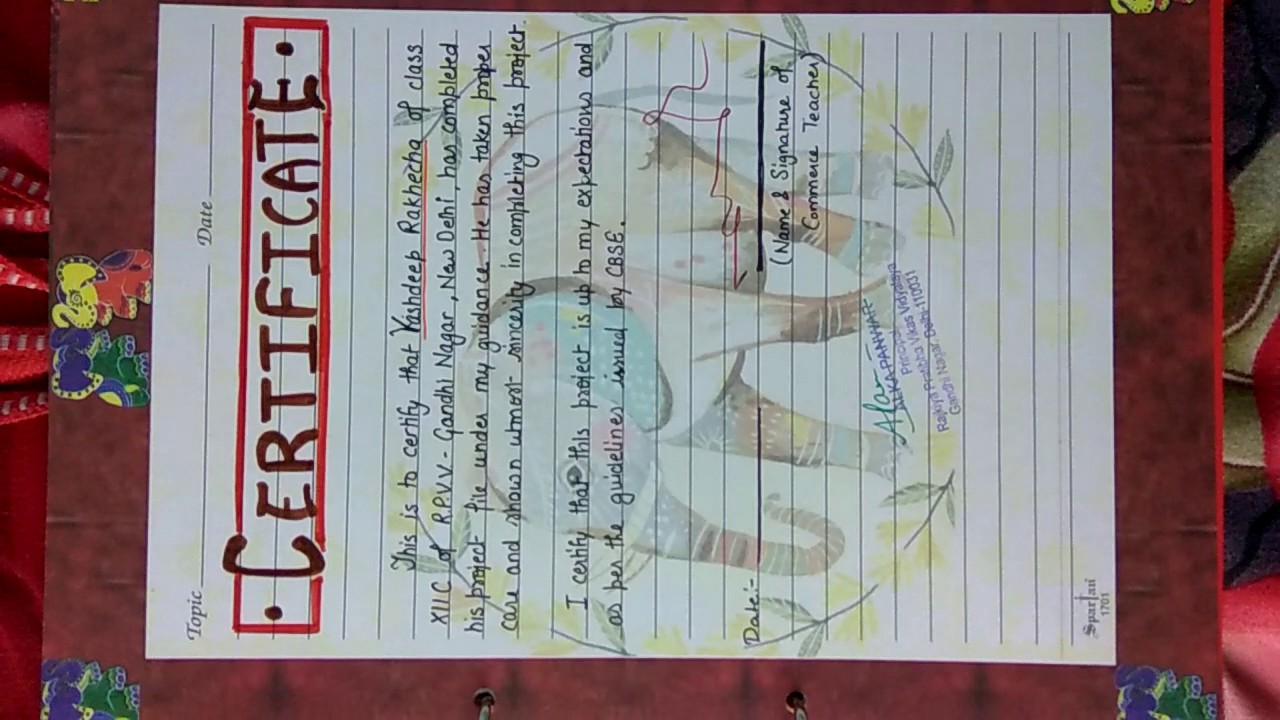 Topic Date
CERTIFICATE
This is to certify that Yashdeep Rakhecha of class
XII C of R.P.V.V - Gandhi Nagar, New Delhi, has completed
his project file under my guidance. He has taken proper
care and shown utmost sincerity in completing this project.
I certify that this project is up to my expectations and
as per the guidelines issued by CBSE.
Date:-
(Name & Signature of
Commerce Teacher)
Principal
Rajkiya Pratibha Vikas Vidyalaya
Gandhi Nagar, Delhi-110031
Spartan
1701